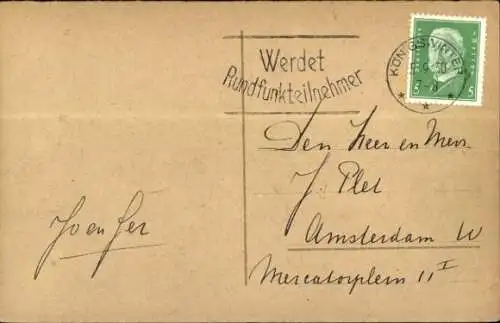 Werdet
Rundfunkteilnehmer
KÖNIGSWINTER
5 5
Den Heer en Mevr.
J. Plet
Amsterdam W
Mercatorplein 11 I
Jo en Ger